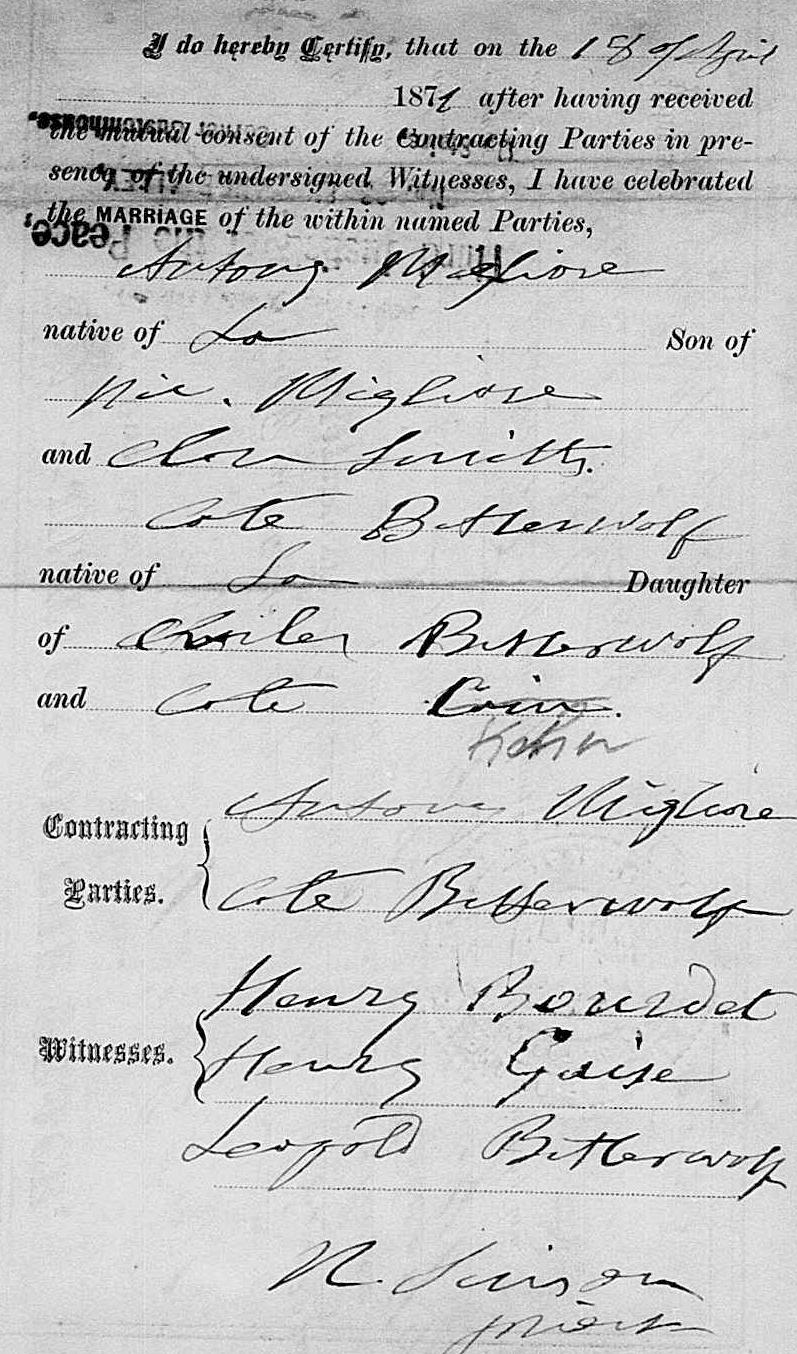 I do hereby Certify, that on the 18 of April
1871 after having received
the mutual consent of the Contracting Parties in pre-
sence of the undersigned Witnesses, I have celebrated
the MARRIAGE of the within named Parties,
Antony Migliore
native of La Son of
Nic. Migliore
and Clora Smith.
Cate Bitterwolf
native of La Daughter
of Charles Bitterwolf
and Cate
Kohn
Contracting Parties. Antony Migliore
Cate Bitterwolf
Witnesses. Henry Bourdet
Henry Gaise
Leopold Bitterwolf
N. Simson
priest